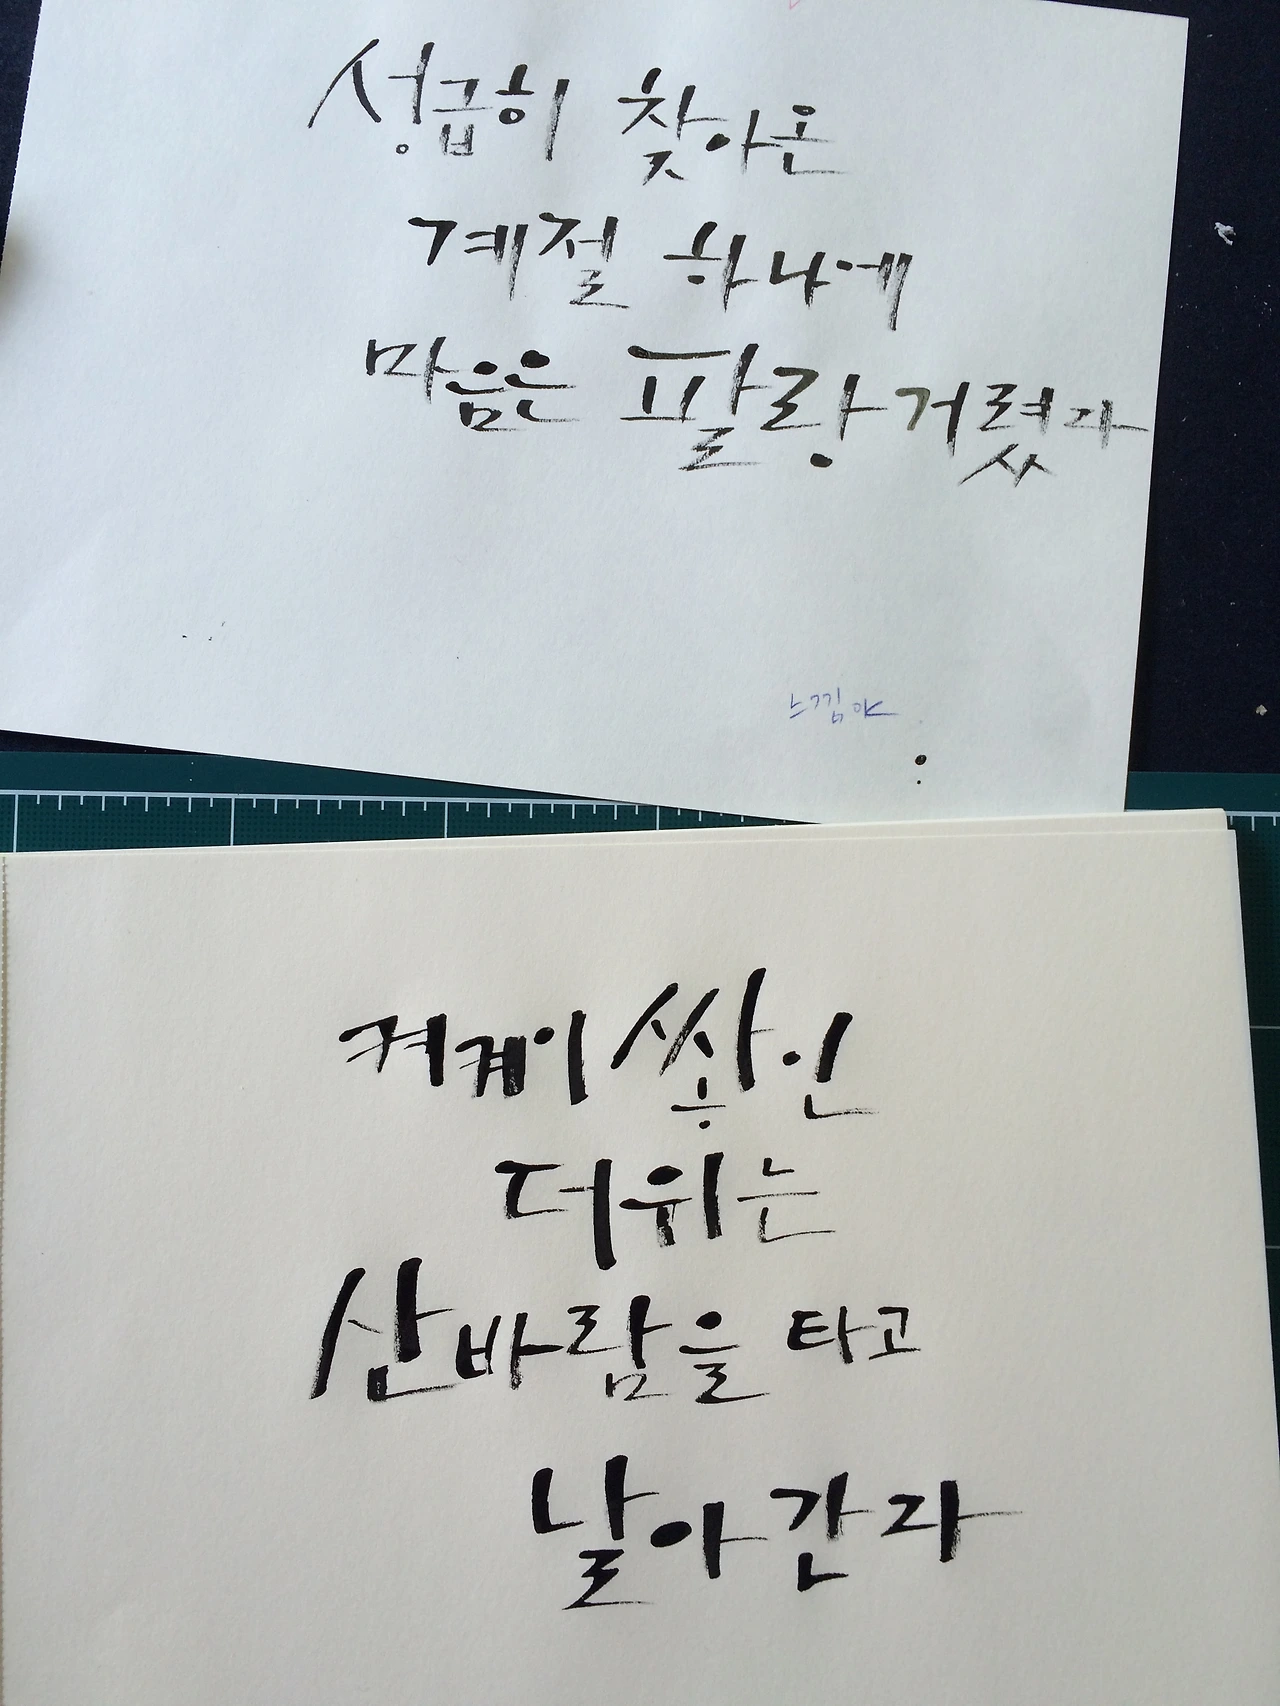 성급히 찾아온
계절 하나에
마음은 팔랑거렸다
느낌아
켜켜이 쌓인
더위는
산바람을 타고
날아간다